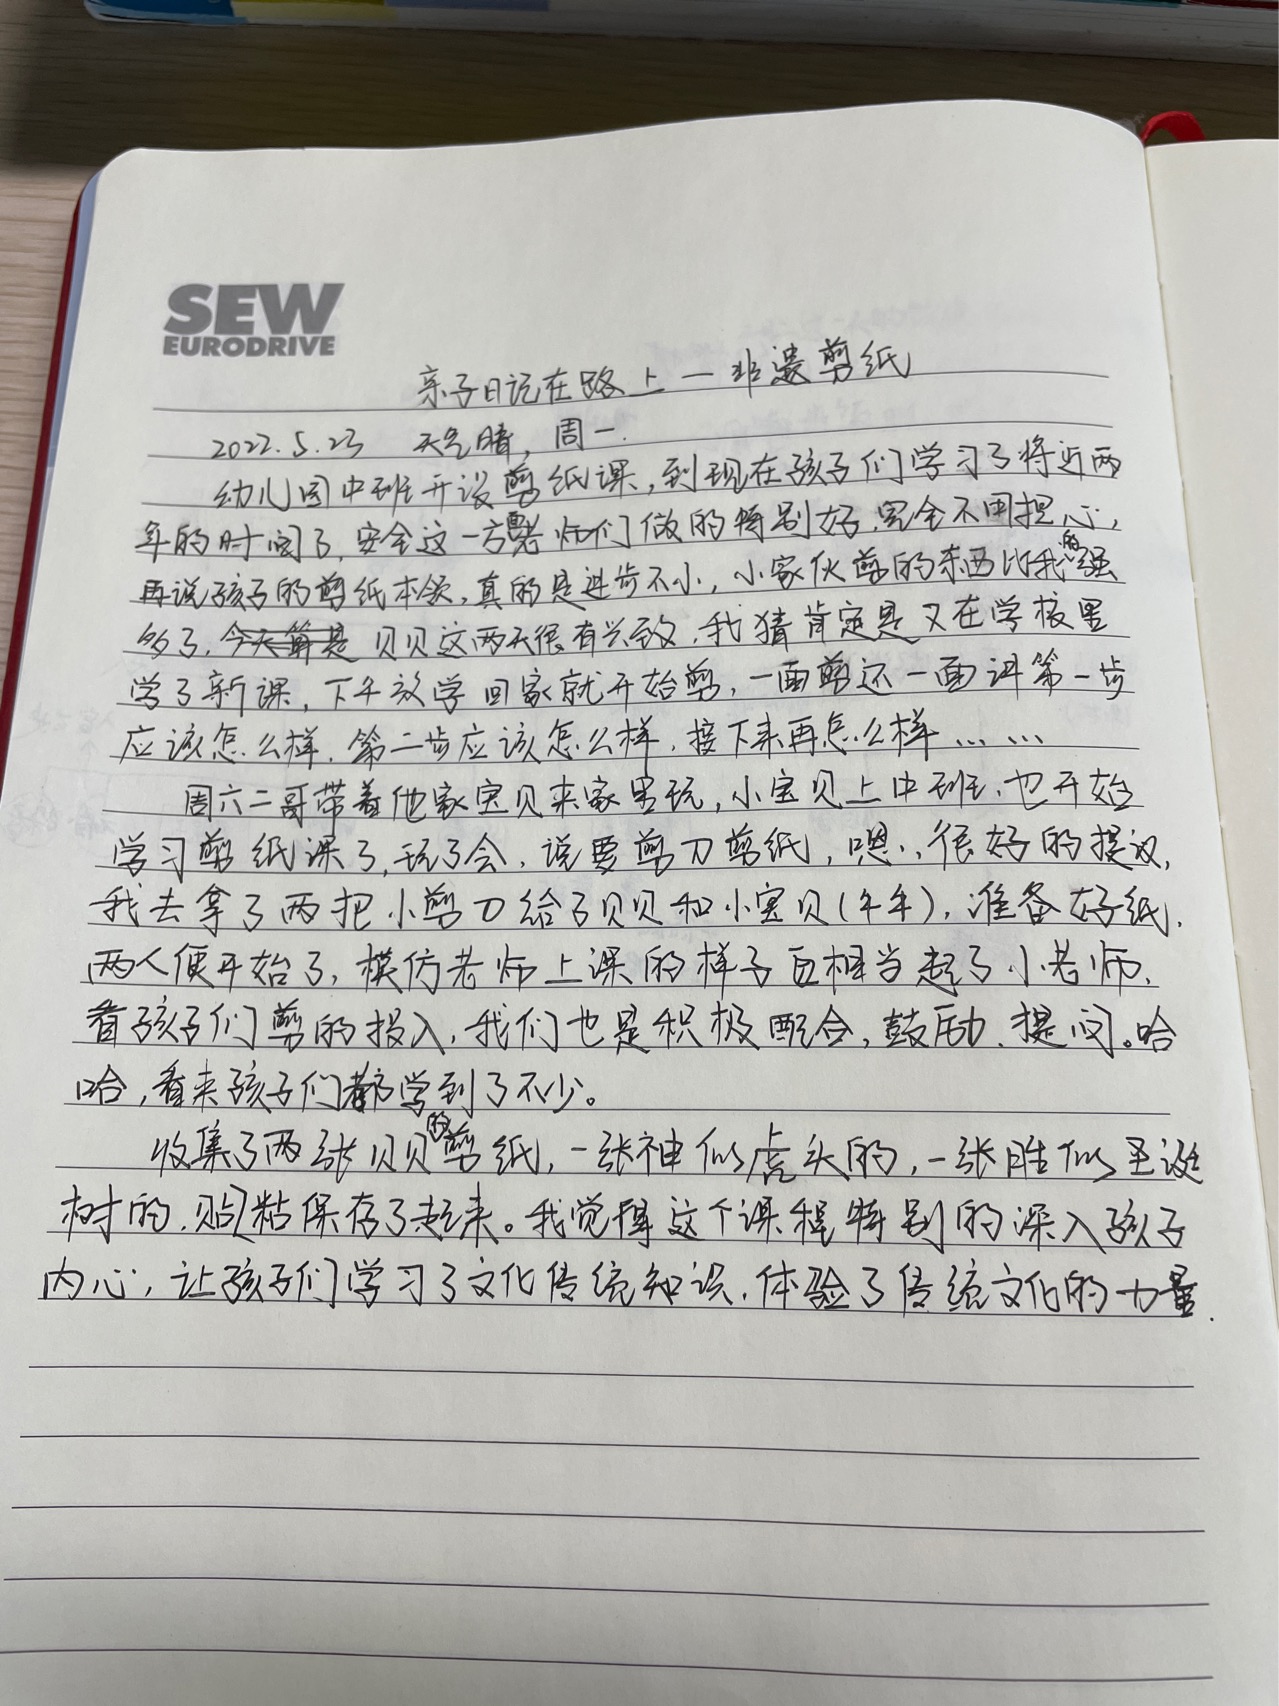 SEW
EURODRIVE
亲子日记在路上一非遗剪纸
2022.5.23 天气晴，周一.
幼儿园中班开设剪纸课，到现在孩子们学习了将近两
年的时间了，安全这一方老师们做的特别好，完全不用担心，
再说孩子的剪纸本领，真的是进步不小，小家伙剪的东西比我的强
多了，今天算是贝贝这两天很有兴致，我猜肯定是又在学校里
学了新课，下午放学回家就开始剪，一面剪还一面讲第一步
应该怎么样，第二步应该怎么样，接下来再怎么样……
周六二哥带着他家宝贝来家里玩，小宝贝上中班，也开始
学习剪纸课了，玩了会，说要剪刀剪纸，嗯..很好的提议，
我去拿了两把小剪刀给了贝贝和小宝贝(牛牛)，准备好纸，
两人便开始了，模仿老师上课的样子互相当起了小老师，
看孩子们剪的投入，我们也是积极配合，鼓励、提问。哈
哈，看来孩子们都学到了不少。
收集了两张贝贝的剪纸，一张神似虎头的，一张胜似圣诞
树的，贴粘保存了起来。我觉得这个课程特别的深入孩子
内心，让孩子们学习了文化传统知识，体验了传统文化的力量.